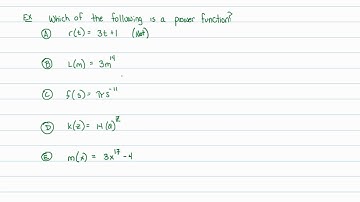 Ex Which of the following is a power function?
A r(t) = 3t+1 (Not)
B L(m) = 3m¹⁹
C f(s) = πs⁻¹¹
D k(z) = 14(8)^z
E m(x) = 3x¹⁷-4